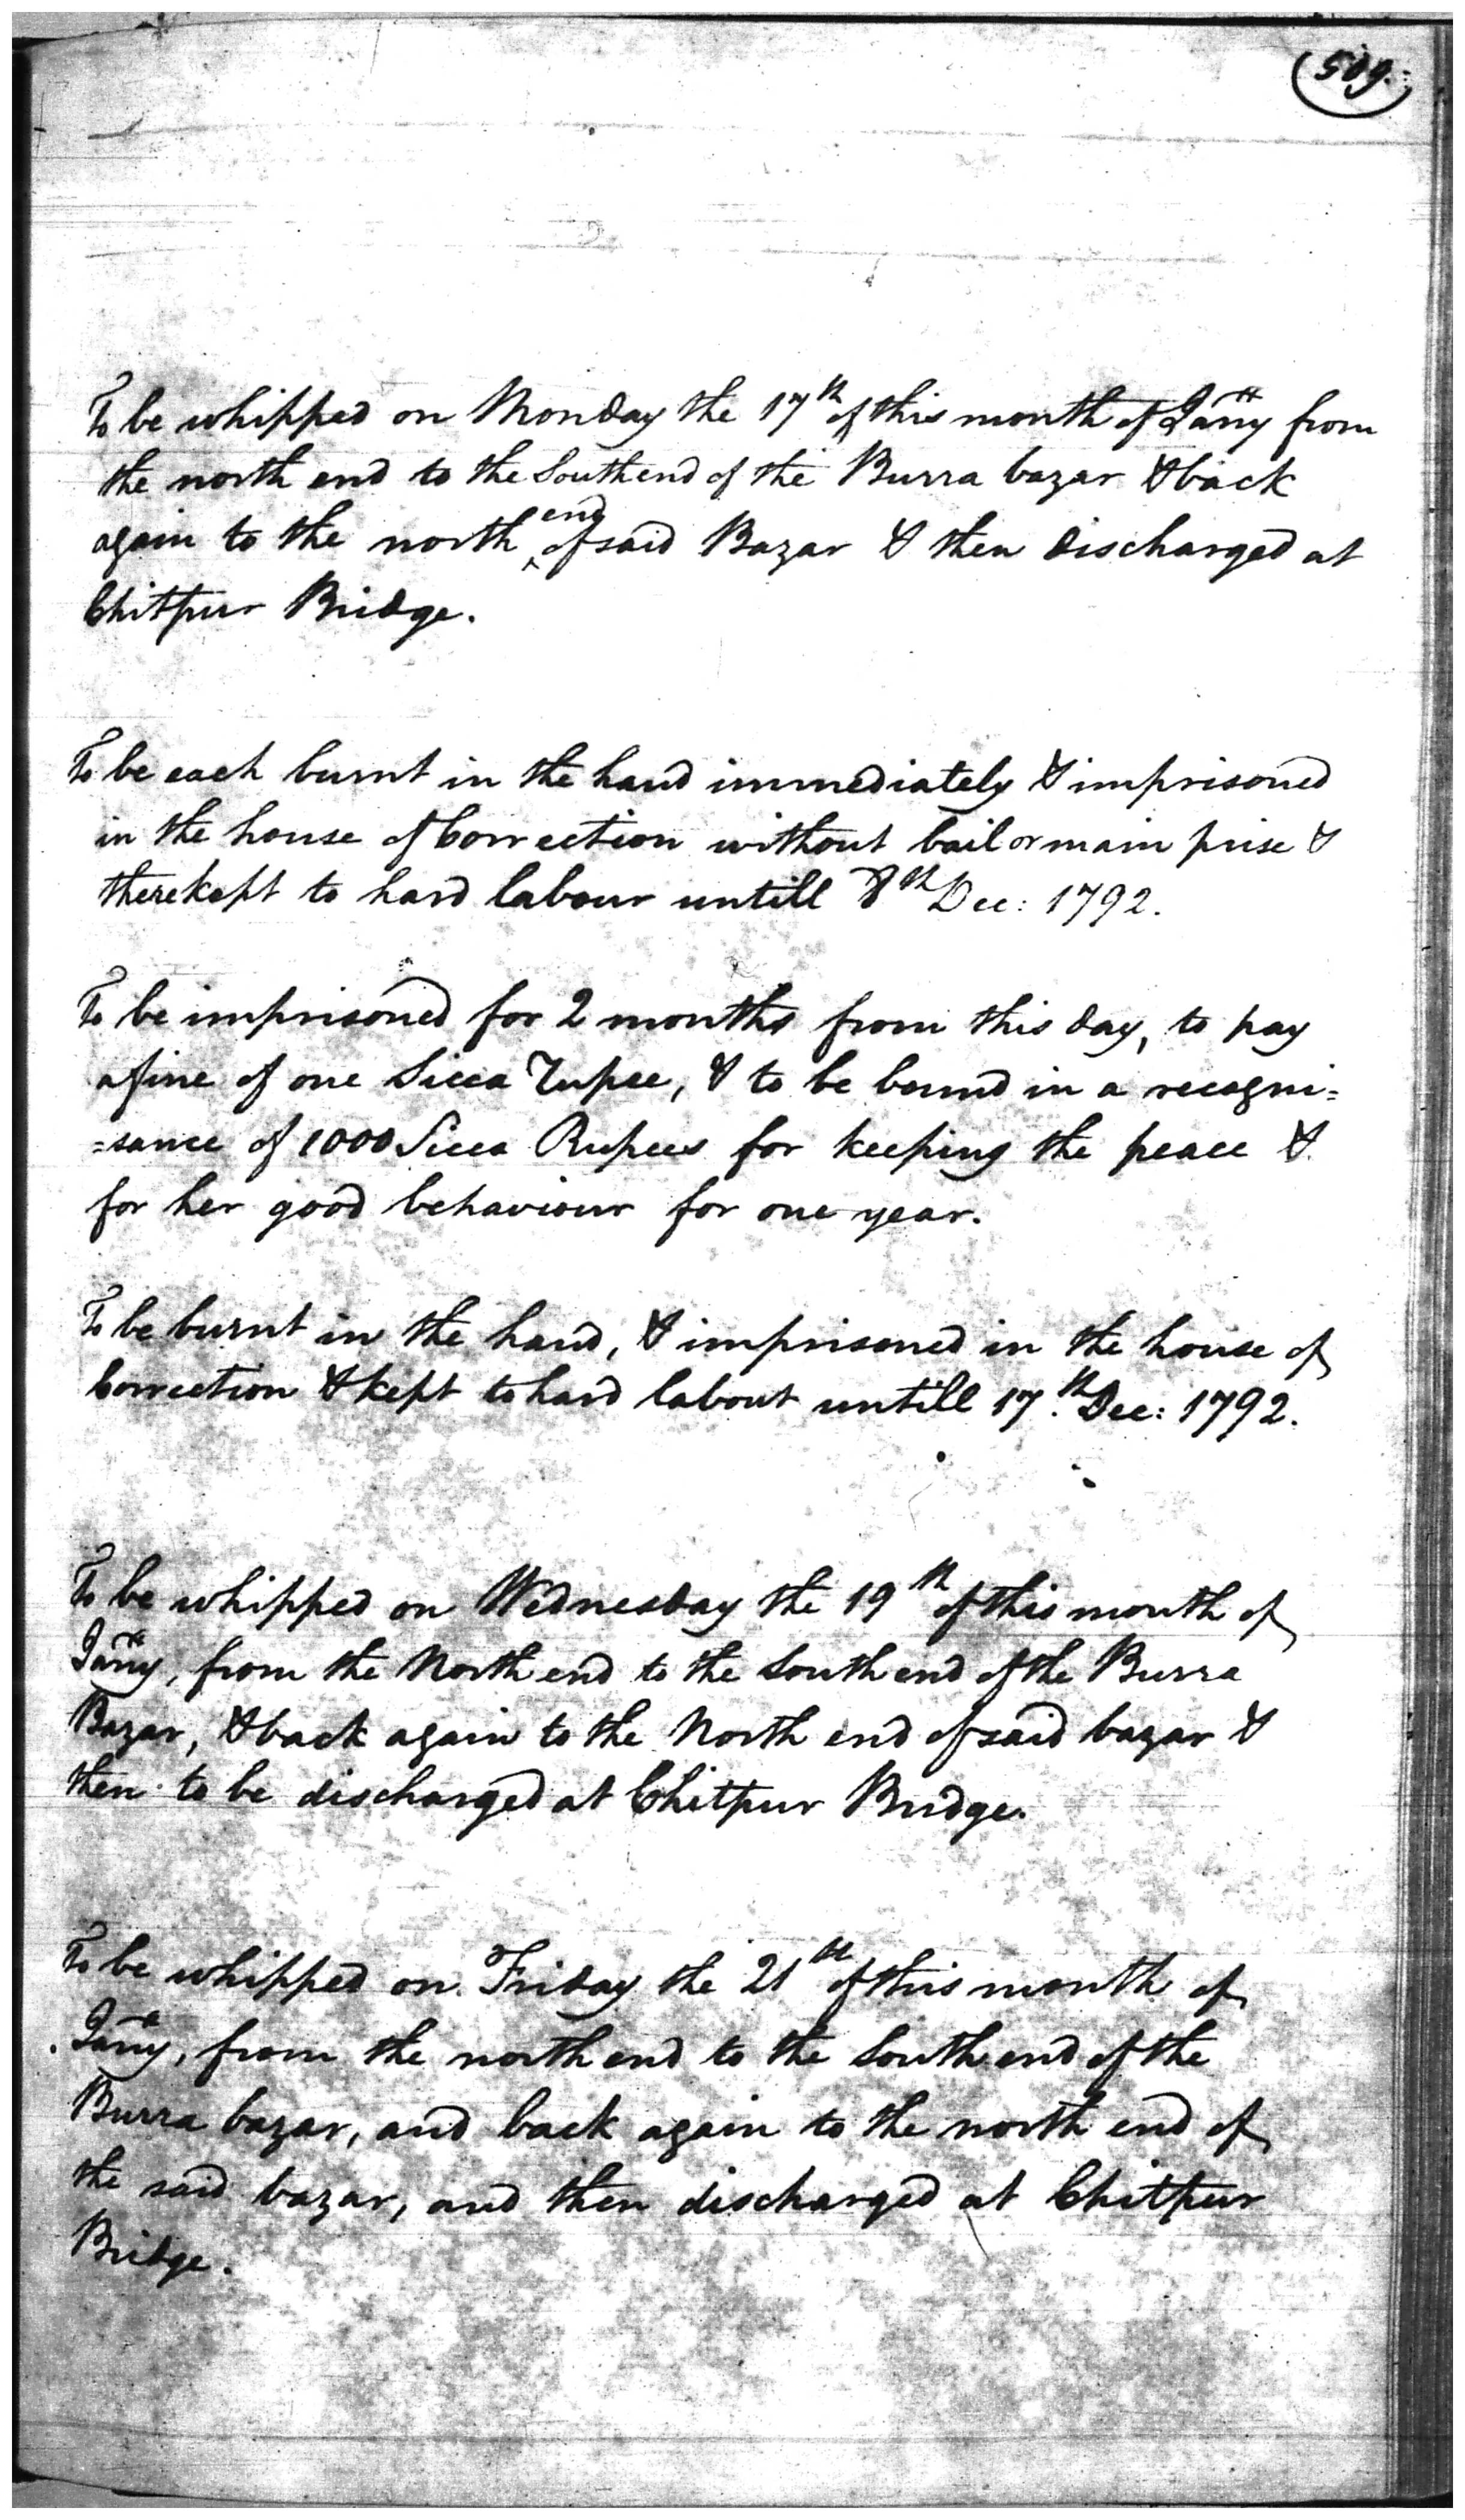 509.
To be whipped on Monday the 17th of this month of Janry from
the north end to the South end of the Burra bazar & back
again to the north end of said Bazar & then discharged at
Chitpur Bridge.
To be each burnt in the hand immediately & imprisoned
in the house of Correction without bail or main prise &
there kept to hard labour untill 8th Dec: 1792.
To be imprisoned for 2 months from this day, to pay
a fine of one Sicca Rupee, & to be bound in a recogni=
=sance of 1000 Sicca Rupees for keeping the peace &
for her good behaviour for one year.
To be burnt in the hand, & imprisoned in the house of
Correction & kept to hard labour untill 17.th Dec: 1792.
To be whipped on Wednesday the 19th of this month of
Janry, from the North end to the South end of the Burra
Bazar, & back again to the North end of said bazar &
then to be discharged at Chitpur Bridge.
To be whipped on Friday the 21st of this month of
Janry, from the north end to the South end of the
Burra bazar, and back again to the north end of
the said bazar, and then discharged at Chitpur
Bridge.